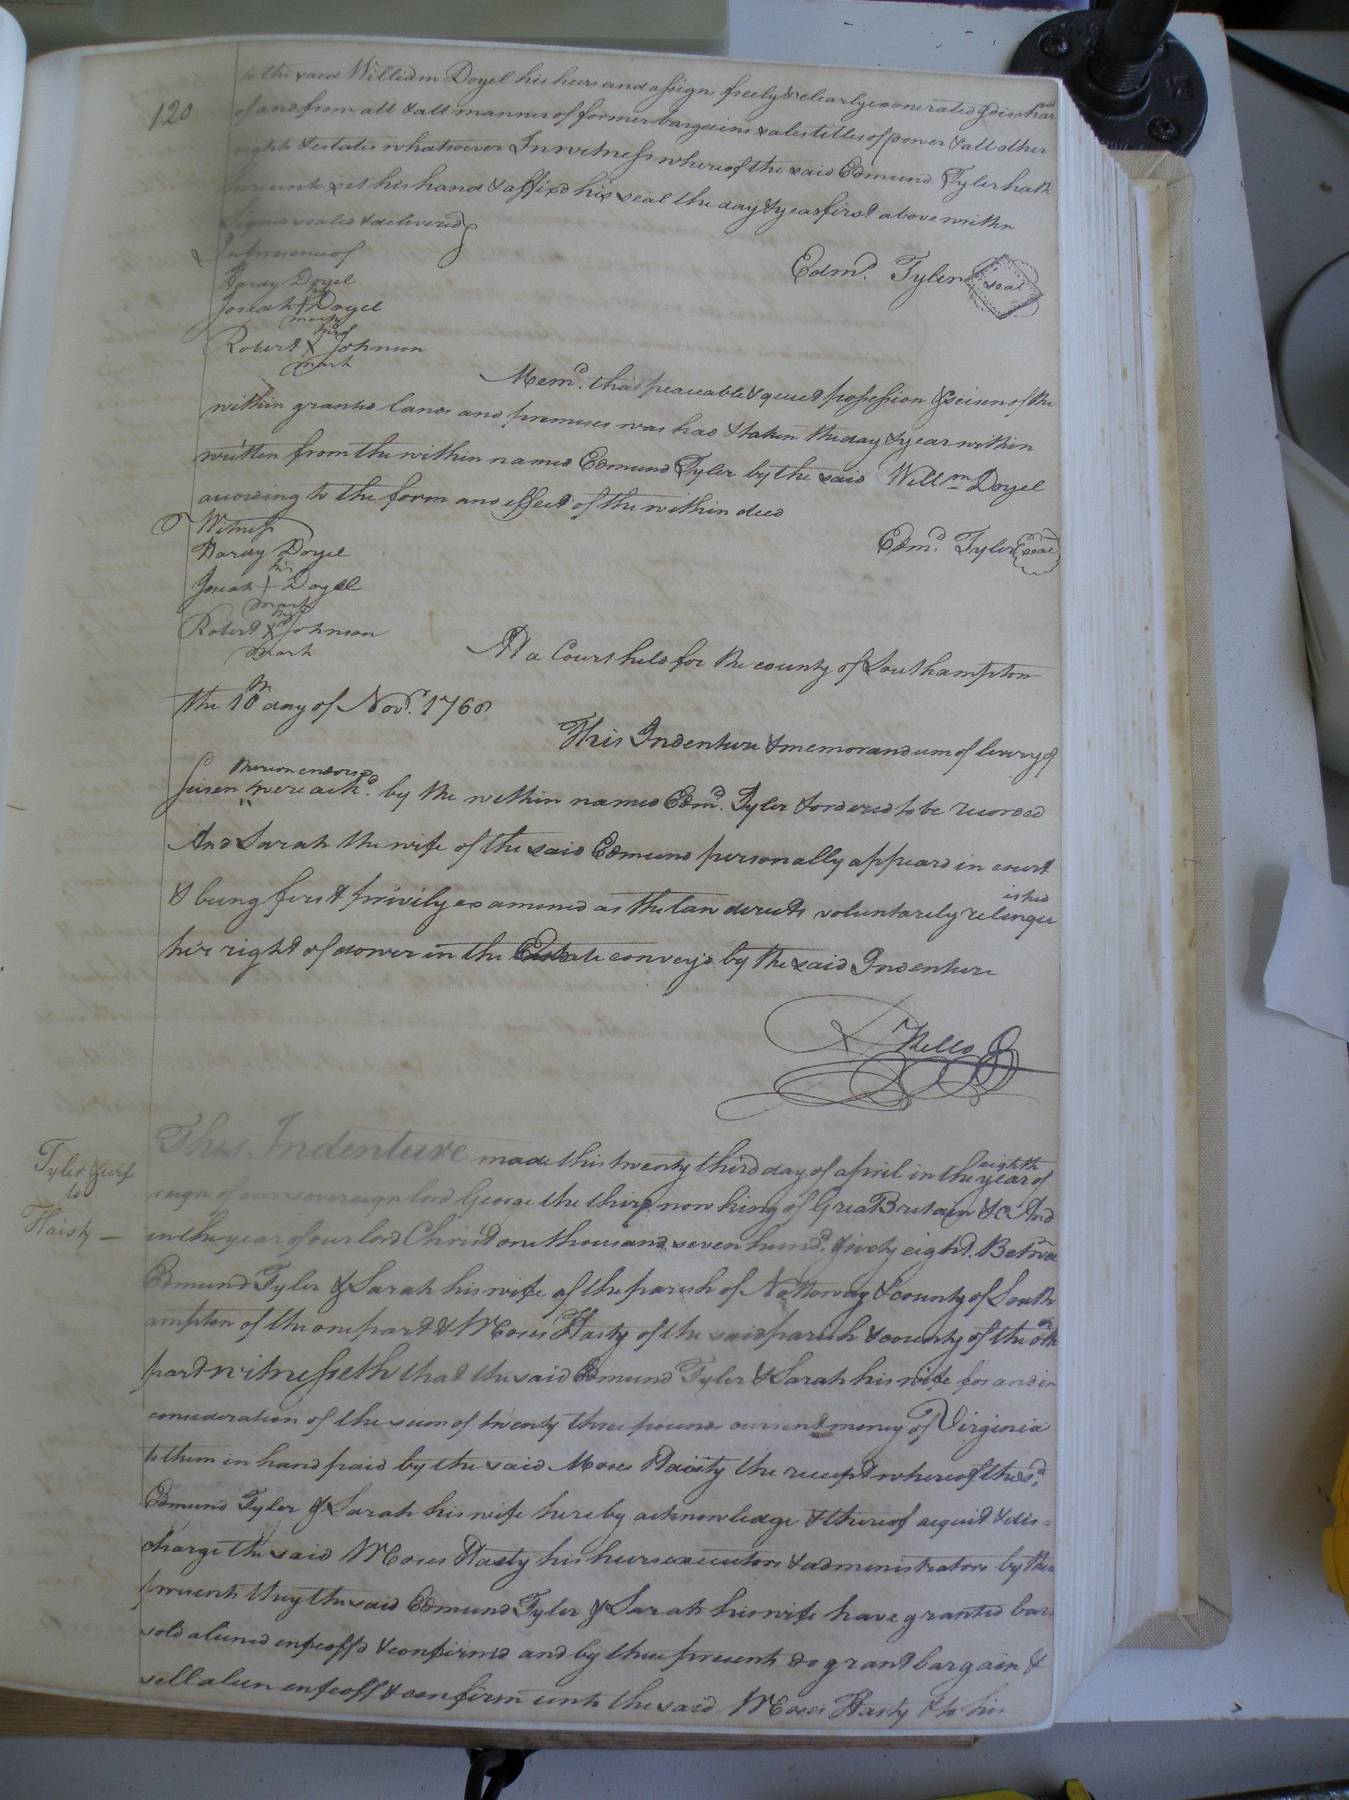 120
to the said William Doyel his heirs and assigns freely & clearly exonerated & dischar
of and from all & all manner of former bargains sales titles of power & all other
right & estates whatsoever In witness whereof the said Edmund Tyler hath
hereunto set his hand & affixd his seal the day & year first above writn
Signd sealed & delivered
In presence of
Hardy Doyel
Edmd. Tyler seal
his
Josiah + Doyel
mark
his
Robert x Johnson
mark
Memd. that peaceable & quiet possession & seisen of the
within granted lands and premises was had & taken the day & year within
written from the within named Edmund Tyler by the said Willm Doyel
according to the form and effect of the within deed
Witness
Edmd. Tyler seal
Hardy Doyel
his
Josiah + Doyel
mark
his
Robert x Johnson
mark
At a Court held for the county of Southampton
the 10th day of Novr. 1768
This Indenture & memorandum of livery &
thereon endorsd
seisen were ackd. by the within named Edmd. Tyler & ordered to be recorded
And Sarah the wife of the said Edmund personally appeard in court
& being first privily examined as the law directs voluntarily relinqu
ished
her right of dower in the Estate convey'd by the said Indenture
R Kello
This Indenture made this twenty third day of april in the eighth year of
Tyler & wife
to
Haisty
reign of our sovereign lord George the third now king of Great Britain &c And
in the year of our lord Christ one thousand seven hund. & sixty eight. Betwee
Edmund Tyler & Sarah his wife of the parish of Nottoway & county of South
ampton of the one part & Moses Hasty of the said parish & county of the oth
part witnesseth that the said Edmund Tyler & Sarah his wife for and in
consideration of the sum of twenty three pounds current money of Virginia
to them in hand paid by the said Moses Haisty the receipt whereof the sd.
Edmund Tyler & Sarah his wife hereby acknowledge & thereof acquit & dis=
charge the said Moses Hasty his heirs executors & administrators by these
presents they the said Edmund Tyler & Sarah his wife have granted bar
sold aliend enfeoffd & confirmd and by these presents do grant bargain &
sell alien enfeoff & confirm unto the said Moses Hasty & to his